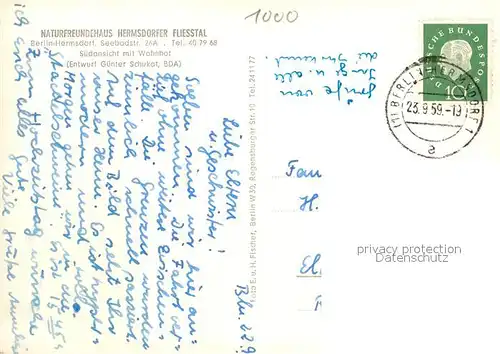 1000
NATURFREUNDEHAUS HERMSDORFER FLIESSTAL
Berlin-Hermsdorf, Seebadstr. 26A . Tel. 40 79 68
Südansicht mit Wohntrakt
(Entwurf Günter Schukat, BDA)
DEUTSCHE BUNDESPOST
10
(1) BERLIN-HERMSDORF 1
23.9.59.-19
a
Grüße von
Inge u. alle
Bln. 22.9.
Liebe Eltern
u. Geschwister!
Soeben sind wir hier an-
gekommen. Die Fahrt ver-
lief ohne weitere Zwischen-
fälle. Die Grenzen wurden
ziemlich schnell passiert.
Auf dem Bild seht Ihr
unser Heim. Es ist
modern und
Morgen gehen wir in die
Stadt
Zum Hochzeitstag wünsche
ich Euch alles Gute
Viele Grüße
Foto E. u. H. Fischer, Berlin W 30, Regensburger Str. 10 Tel. 24 11 77
Fam
H.
privacy protection